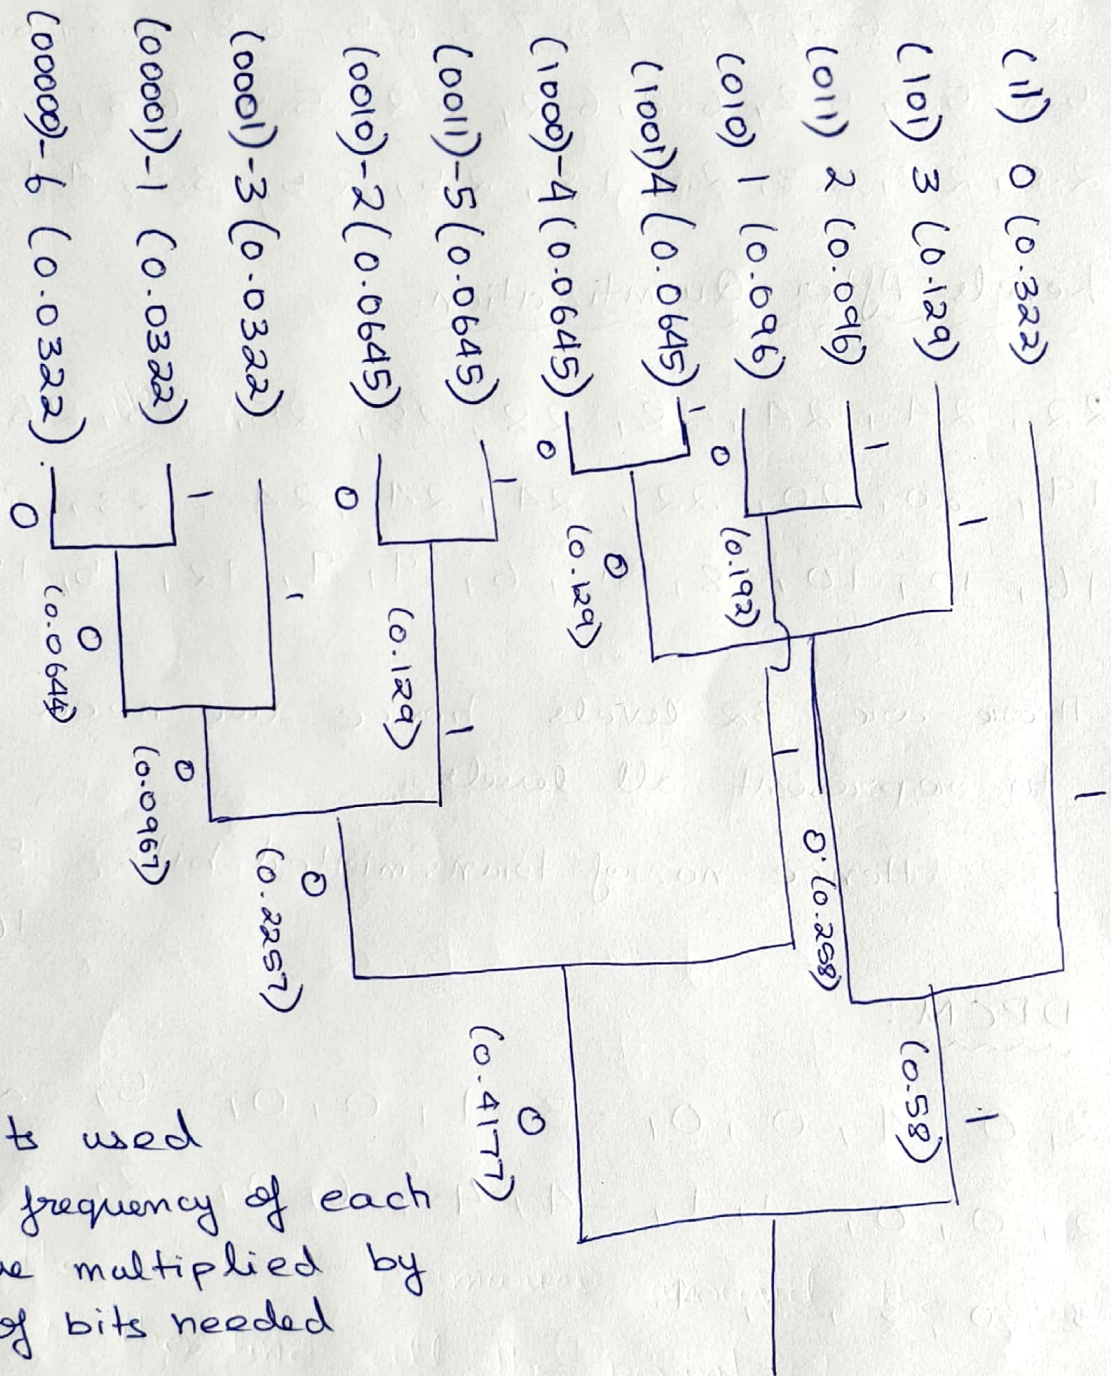 (11) 0 (0.322)
(101) 3 (0.129)
(011) 2 (0.096)
(010) 1 (0.096)
(1001) 4 (0.0645)
(1000) -4 (0.0645)
(0011) -5 (0.0645)
(0010) -2 (0.0645)
(0001) -3 (0.0322)
(00001) -1 (0.0322)
(00000) -6 (0.0322)
1
1
1
0
1
0
1
0
1
1
0
(0.192)
0
(0.129)
(0.129)
1
0
(0.0644)
0
(0.0967)
1
0 (0.258)
0
(0.2257)
1
(0.58)
0
(0.4177)
ts used
frequency of each
multiplied by
of bits needed